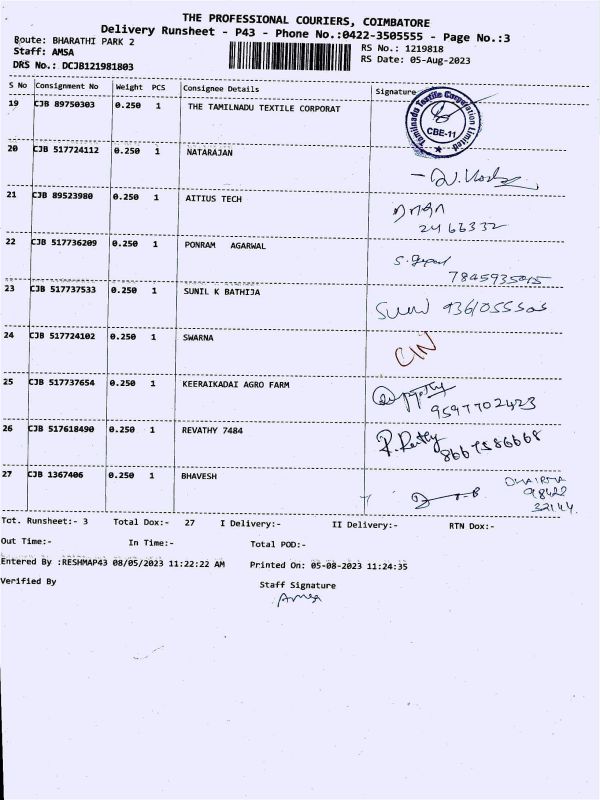 THE PROFESSIONAL COURIERS, COIMBATORE
Delivery Runsheet - P43 - Phone No.:0422-3505555 - Page No.:3
Route: BHARATHI PARK 2
RS No.: 1219818
Staff: AMSA
RS Date: 05-Aug-2023
DRS No.: DCJB121981803
S No Consignment No Weight PCS Consignee Details Signature
19 CJB 89750303 0.250 1 THE TAMILNADU TEXTILE CORPORAT
Tamilnadu Textile Corporation Limited
CBE-11
20 CJB 517724112 0.250 1 NATARAJAN
21 CJB 89523980 0.250 1 AITIUS TECH
2466332
22 CJB 517736209 0.250 1 PONRAM AGARWAL
S. Gopal
23 CJB 517737533 0.250 1 SUNIL K BATHIJA
24 CJB 517724102 0.250 1 SWARNA
25 CJB 517737654 0.250 1 KEERAIKADAI AGRO FARM
9597702423
26 CJB 517618490 0.250 1 REVATHY 7484
8667586668
27 CJB 1367406 0.250 1 BHAVESH
98422
32144
Tot. Runsheet:- 3 Total Dox:- 27 I Delivery:- II Delivery:- RTN Dox:-
Out Time:- In Time:- Total POD:-
Entered By :RESHMAP43 08/05/2023 11:22:22 AM Printed On: 05-08-2023 11:24:35
Verified By Staff Signature
Amsa